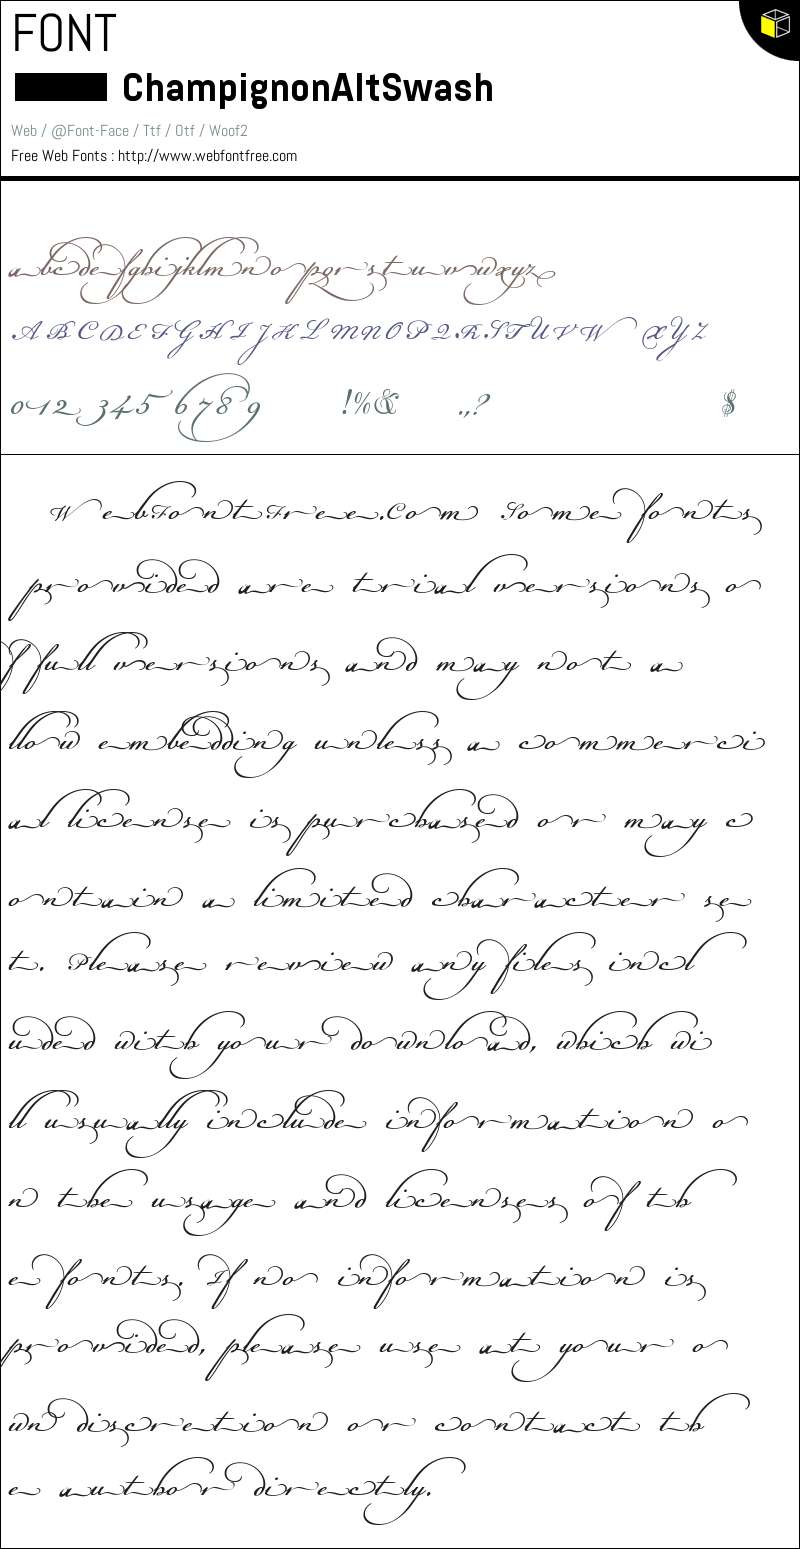 FONT
ChampignonAltSwash
Web / @Font-Face / Ttf / Otf / Woof2
Free Web Fonts : http://www.webfontfree.com
abcdefghijklmnopqrstuvwxyz
ABCDEFGHIJKLMNOPQRSTUVWXYZ
0123456789 !%& .,? $
WebFontFree.Com Some fonts
provided are trial versions o
f full versions and may not a
llow embedding unless a commerci
al license is purchased or may c
ontain a limited character se
t. Please review any files incl
uded with your download, which wi
ll usually include information o
n the usage and licenses of th
e fonts. If no information is
provided, please use at your o
wn discretion or contact th
e author directly.